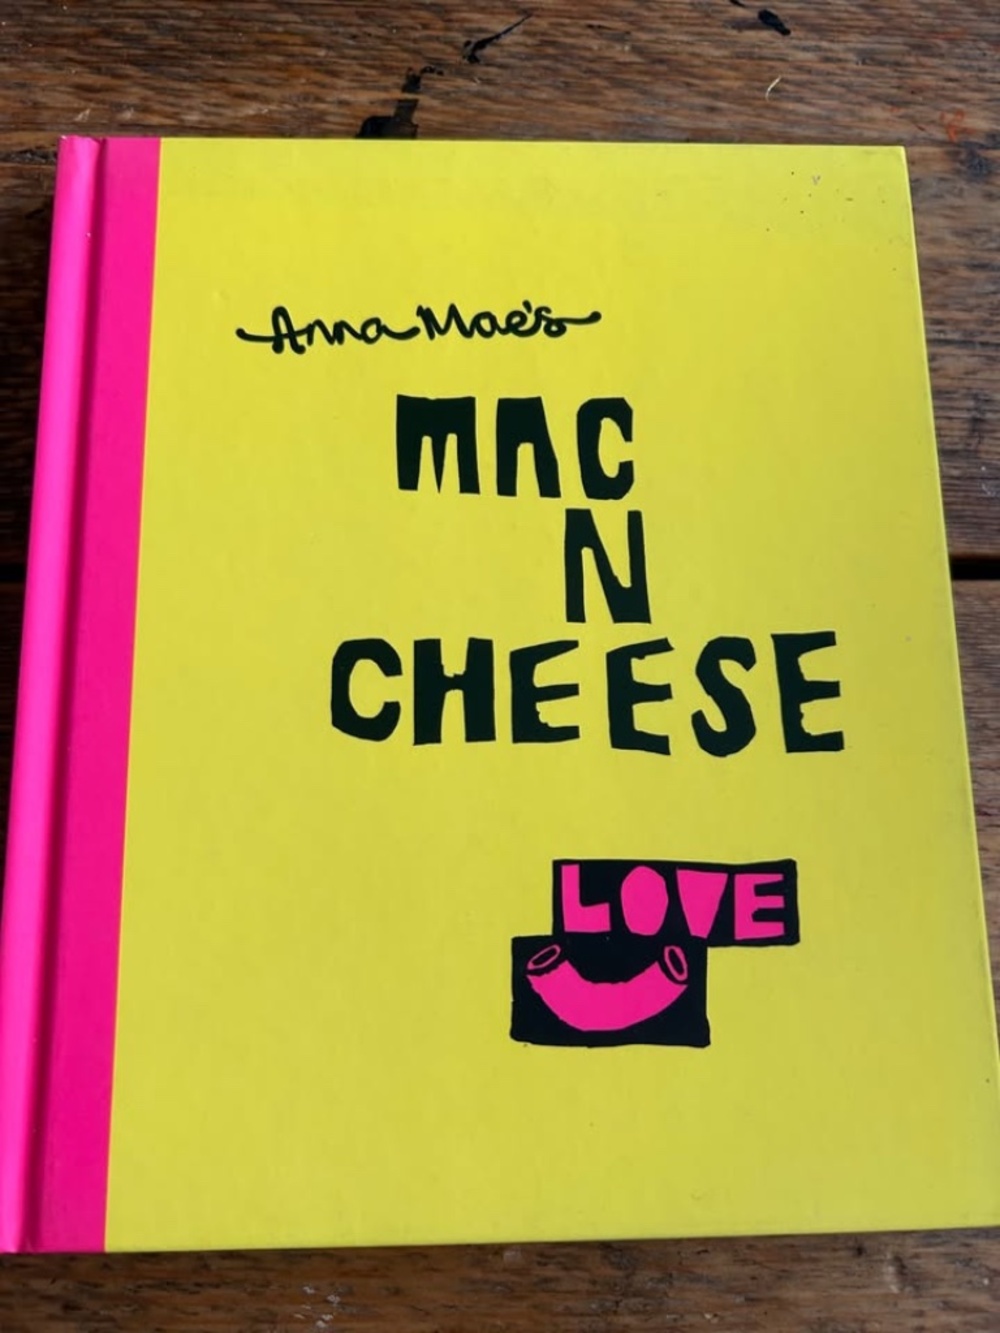 Anna Mae's
MAC
N
CHEESE
LOVE